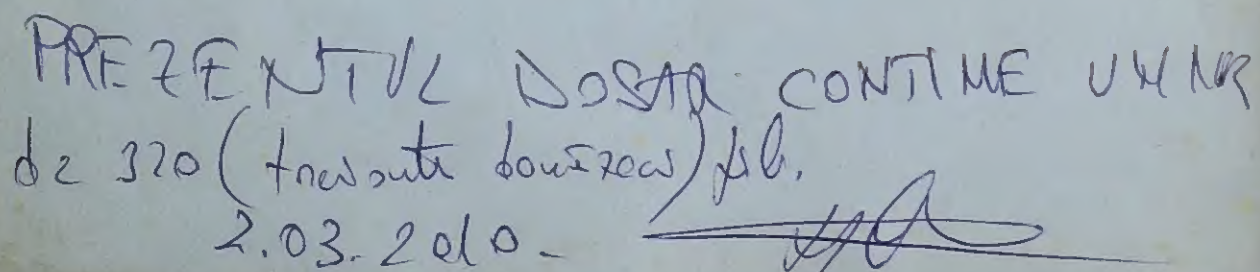 PREZENTUL DOSAR CONTINE UN NR
de 320 (treisute douăzeci) file.
2.03.2010.